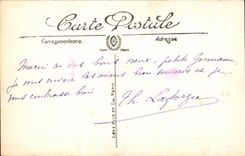 Carte Postale
Correspondance
Adresse
Merci de vos bons vœux, petite Germaine
je vous envoie les miens bien sincères et je
vous embrasse bien
Th. Laforgue